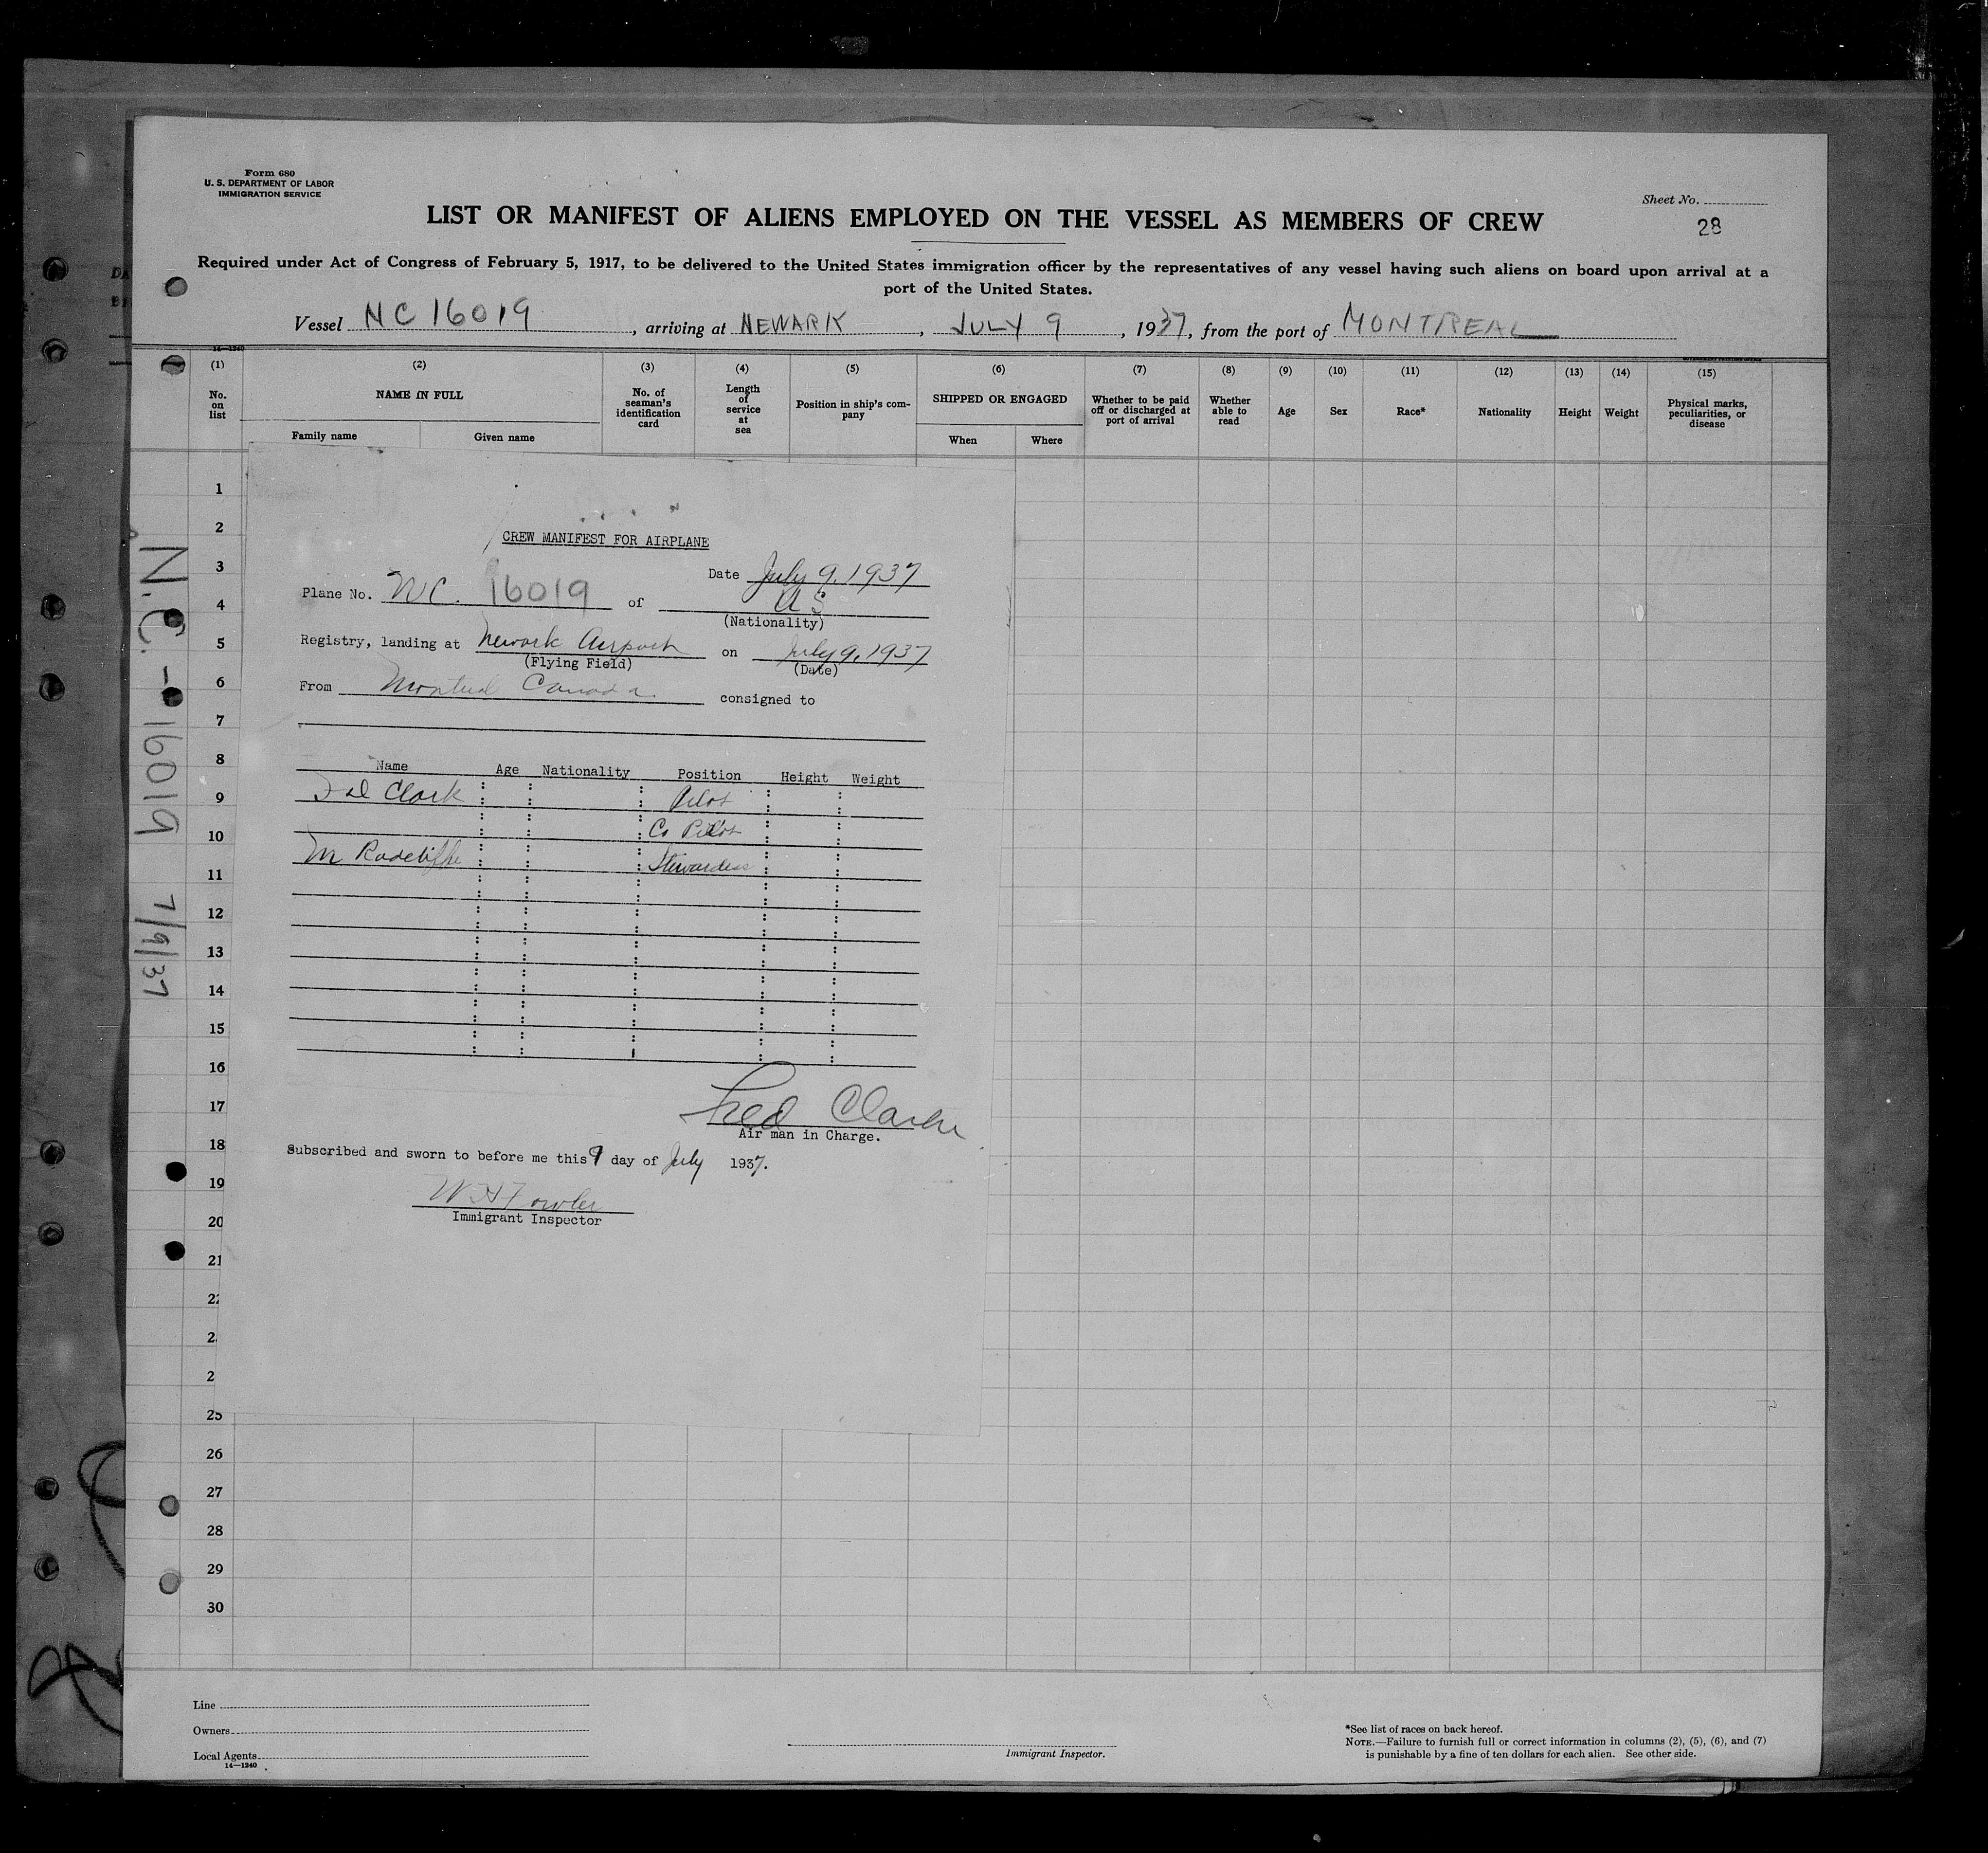 Form 680
U. S. DEPARTMENT OF LABOR
IMMIGRATION SERVICE
Sheet No.
28
LIST OR MANIFEST OF ALIENS EMPLOYED ON THE VESSEL AS MEMBERS OF CREW
Required under Act of Congress of February 5, 1917, to be delivered to the United States immigration officer by the representatives of any vessel having such aliens on board upon arrival at a
port of the United States.
Vessel NC 16019, arriving at NEWARK, JULY 9, 1937, from the port of MONTREAL
14—1240
(1) (2) (3) (4) (5) (6) (7) (8) (9) (10) (11) (12) (13) (14) (15)
No. on list
NAME IN FULL
Family name Given name
No. of seaman's identification card
Length of service at sea
Position in ship's company
SHIPPED OR ENGAGED
When Where
Whether to be paid off or discharged at port of arrival
Whether able to read
Age
Sex
Race*
Nationality
Height
Weight
Physical marks, peculiarities, or disease
1
2
3
4
5
6
7
8
9
10
11
12
13
14
15
16
17
18
19
20
21
22
2
2
25
26
27
28
29
30
N.C. - 16019 7/9/37
CREW MANIFEST FOR AIRPLANE
Date July 9, 1937
Plane No. NC. 16019 of US
(Nationality)
Registry, landing at Newark Airport on July 9, 1937
(Flying Field) (Date)
From Montreal Canada consigned to
Name Age Nationality Position Height Weight
Clark Pilot
Co Pilot
M Radcliffe Stewardess
Fred Clark
Air man in Charge.
Subscribed and sworn to before me this 9 day of July 1937.
W H Fowler
Immigrant Inspector
Line
Owners
Local Agents
14—1240
Immigrant Inspector.
*See list of races on back hereof.
NOTE.—Failure to furnish full or correct information in columns (2), (5), (6), and (7)
is punishable by a fine of ten dollars for each alien. See other side.